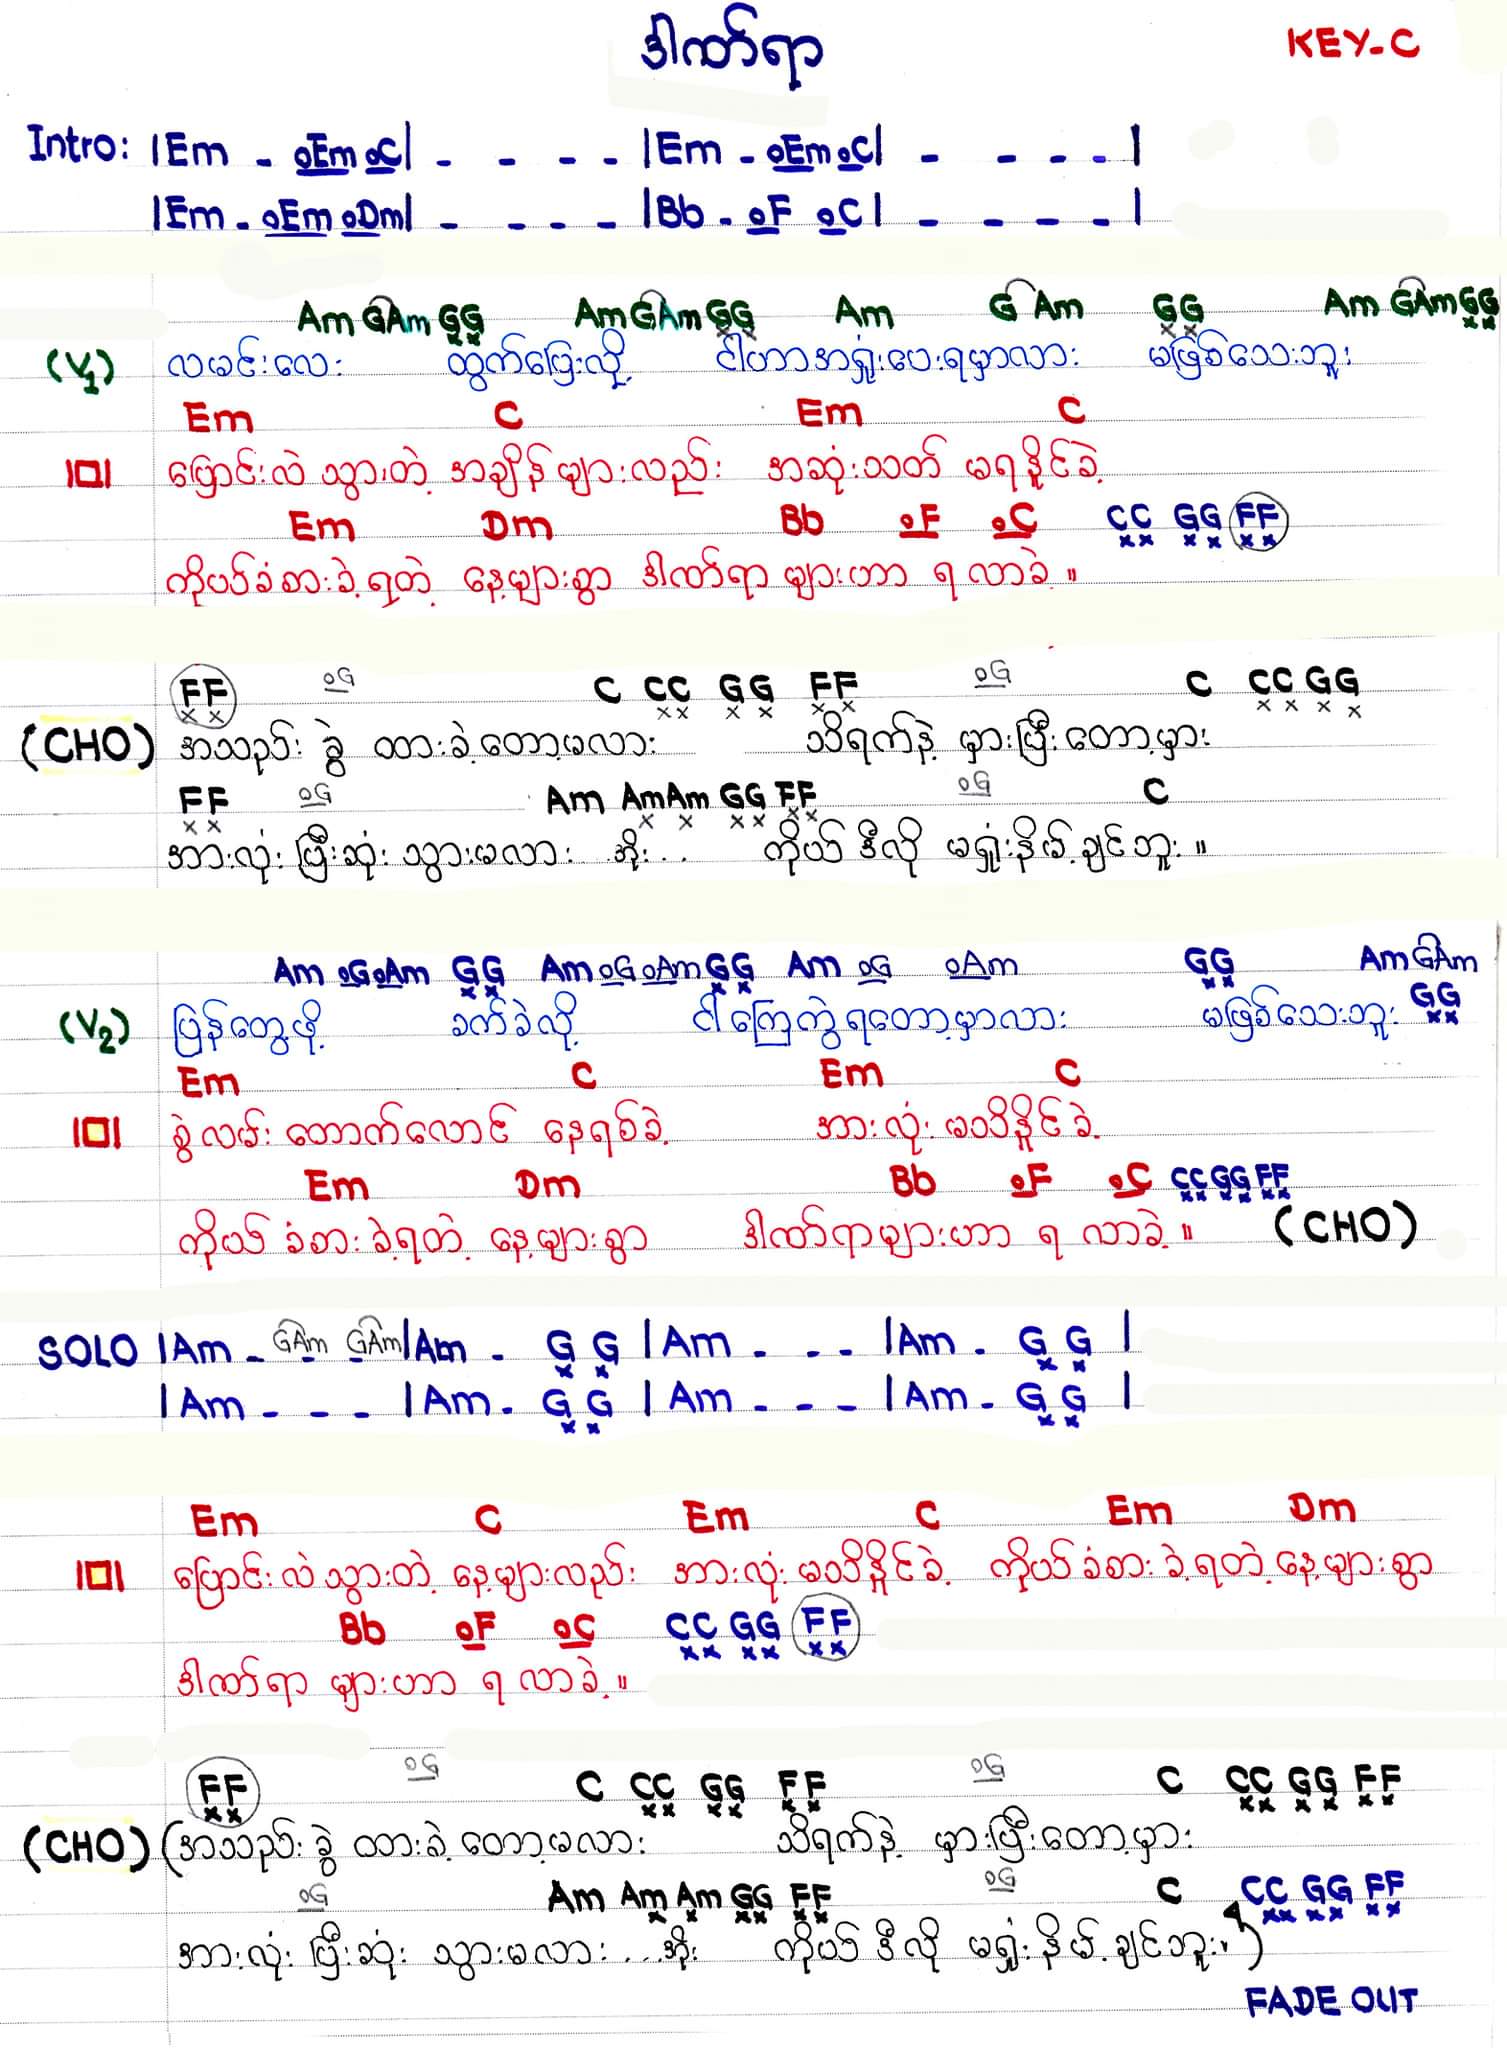 ဒါဏ်ရာ
KEY-C
Intro: |Em - oEm oC| - - - - |Em - oEm oC| - - - - |
|Em - oEm oDm| - - - - |Bb - oF oC| - - - - |
Am GAm GG Am GAm GG Am G Am GG Am GAm GG
(V1) လမင်းလေး ထွက်ပြေးလို့ ငါဟာအရှုံးပေးရမှာလား မဖြစ်သေးဘူး
Em C Em C
ပြောင်းလဲသွားတဲ့ အချိန်များလည်း အဆုံးသတ် မရနိုင်ခဲ့
Em Dm Bb oF oC CC GG FF
ကိုယ်ခံစားခဲ့ရတဲ့ နေ့များစွာ ဒါဏ်ရာများဟာ ရလာခဲ့ ။
FF oG C CC GG FF oG C CC GG
(CHO) အသည်းခွဲ ထားခဲ့တော့မလား သိရက်နဲ့ မှားပြီးတော့မှား
FF oG Am AmAm GG FF oG C
အားလုံး ပြီးဆုံး သွားမလား အိုး.. ကိုယ် ဒီလို မရှုံးနိမ့်ချင်ဘူး ။
Am oGoAm GG Am oGoAm GG Am oG oAm GG Am GAm
GG
(V2) ပြန်တွေ့ဖို့ ခက်ခဲလို့ ငါကြေကွဲရတော့မှာလား မဖြစ်သေးဘူး
Em C Em C
စွဲလမ်း တောက်လောင် နေရစ်ခဲ့ အားလုံး မသိနိုင်ခဲ့
Em Dm Bb oF oC CC GG FF
ကိုယ် ခံစားခဲ့ရတဲ့ နေ့များစွာ ဒါဏ်ရာများဟာ ရ လာခဲ့ ။ (CHO)
SOLO |Am - GAm - GAm|Am - G G |Am - - - |Am - G G |
|Am - - - |Am - G G |Am - - - |Am - G G |
Em C Em C Em Dm
ပြောင်းလဲသွားတဲ့ နေ့များလည်း အားလုံး မသိနိုင်ခဲ့ ကိုယ်ခံစားခဲ့ရတဲ့နေ့များစွာ
Bb oF oC CC GG FF
ဒါဏ်ရာ များဟာ ရလာခဲ့ ။
FF oG C CC GG FF oG C CC GG FF
(CHO) (အသည်းခွဲ ထားခဲ့တော့မလား သိရက်နဲ့ မှားပြီးတော့မှား
oG Am Am Am GG FF oG C CC GG FF
အားလုံး ပြီးဆုံး သွားမလား...အိုး ကိုယ် ဒီလို မရှုံးနိမ့်ချင်ဘူး)
FADE OUT